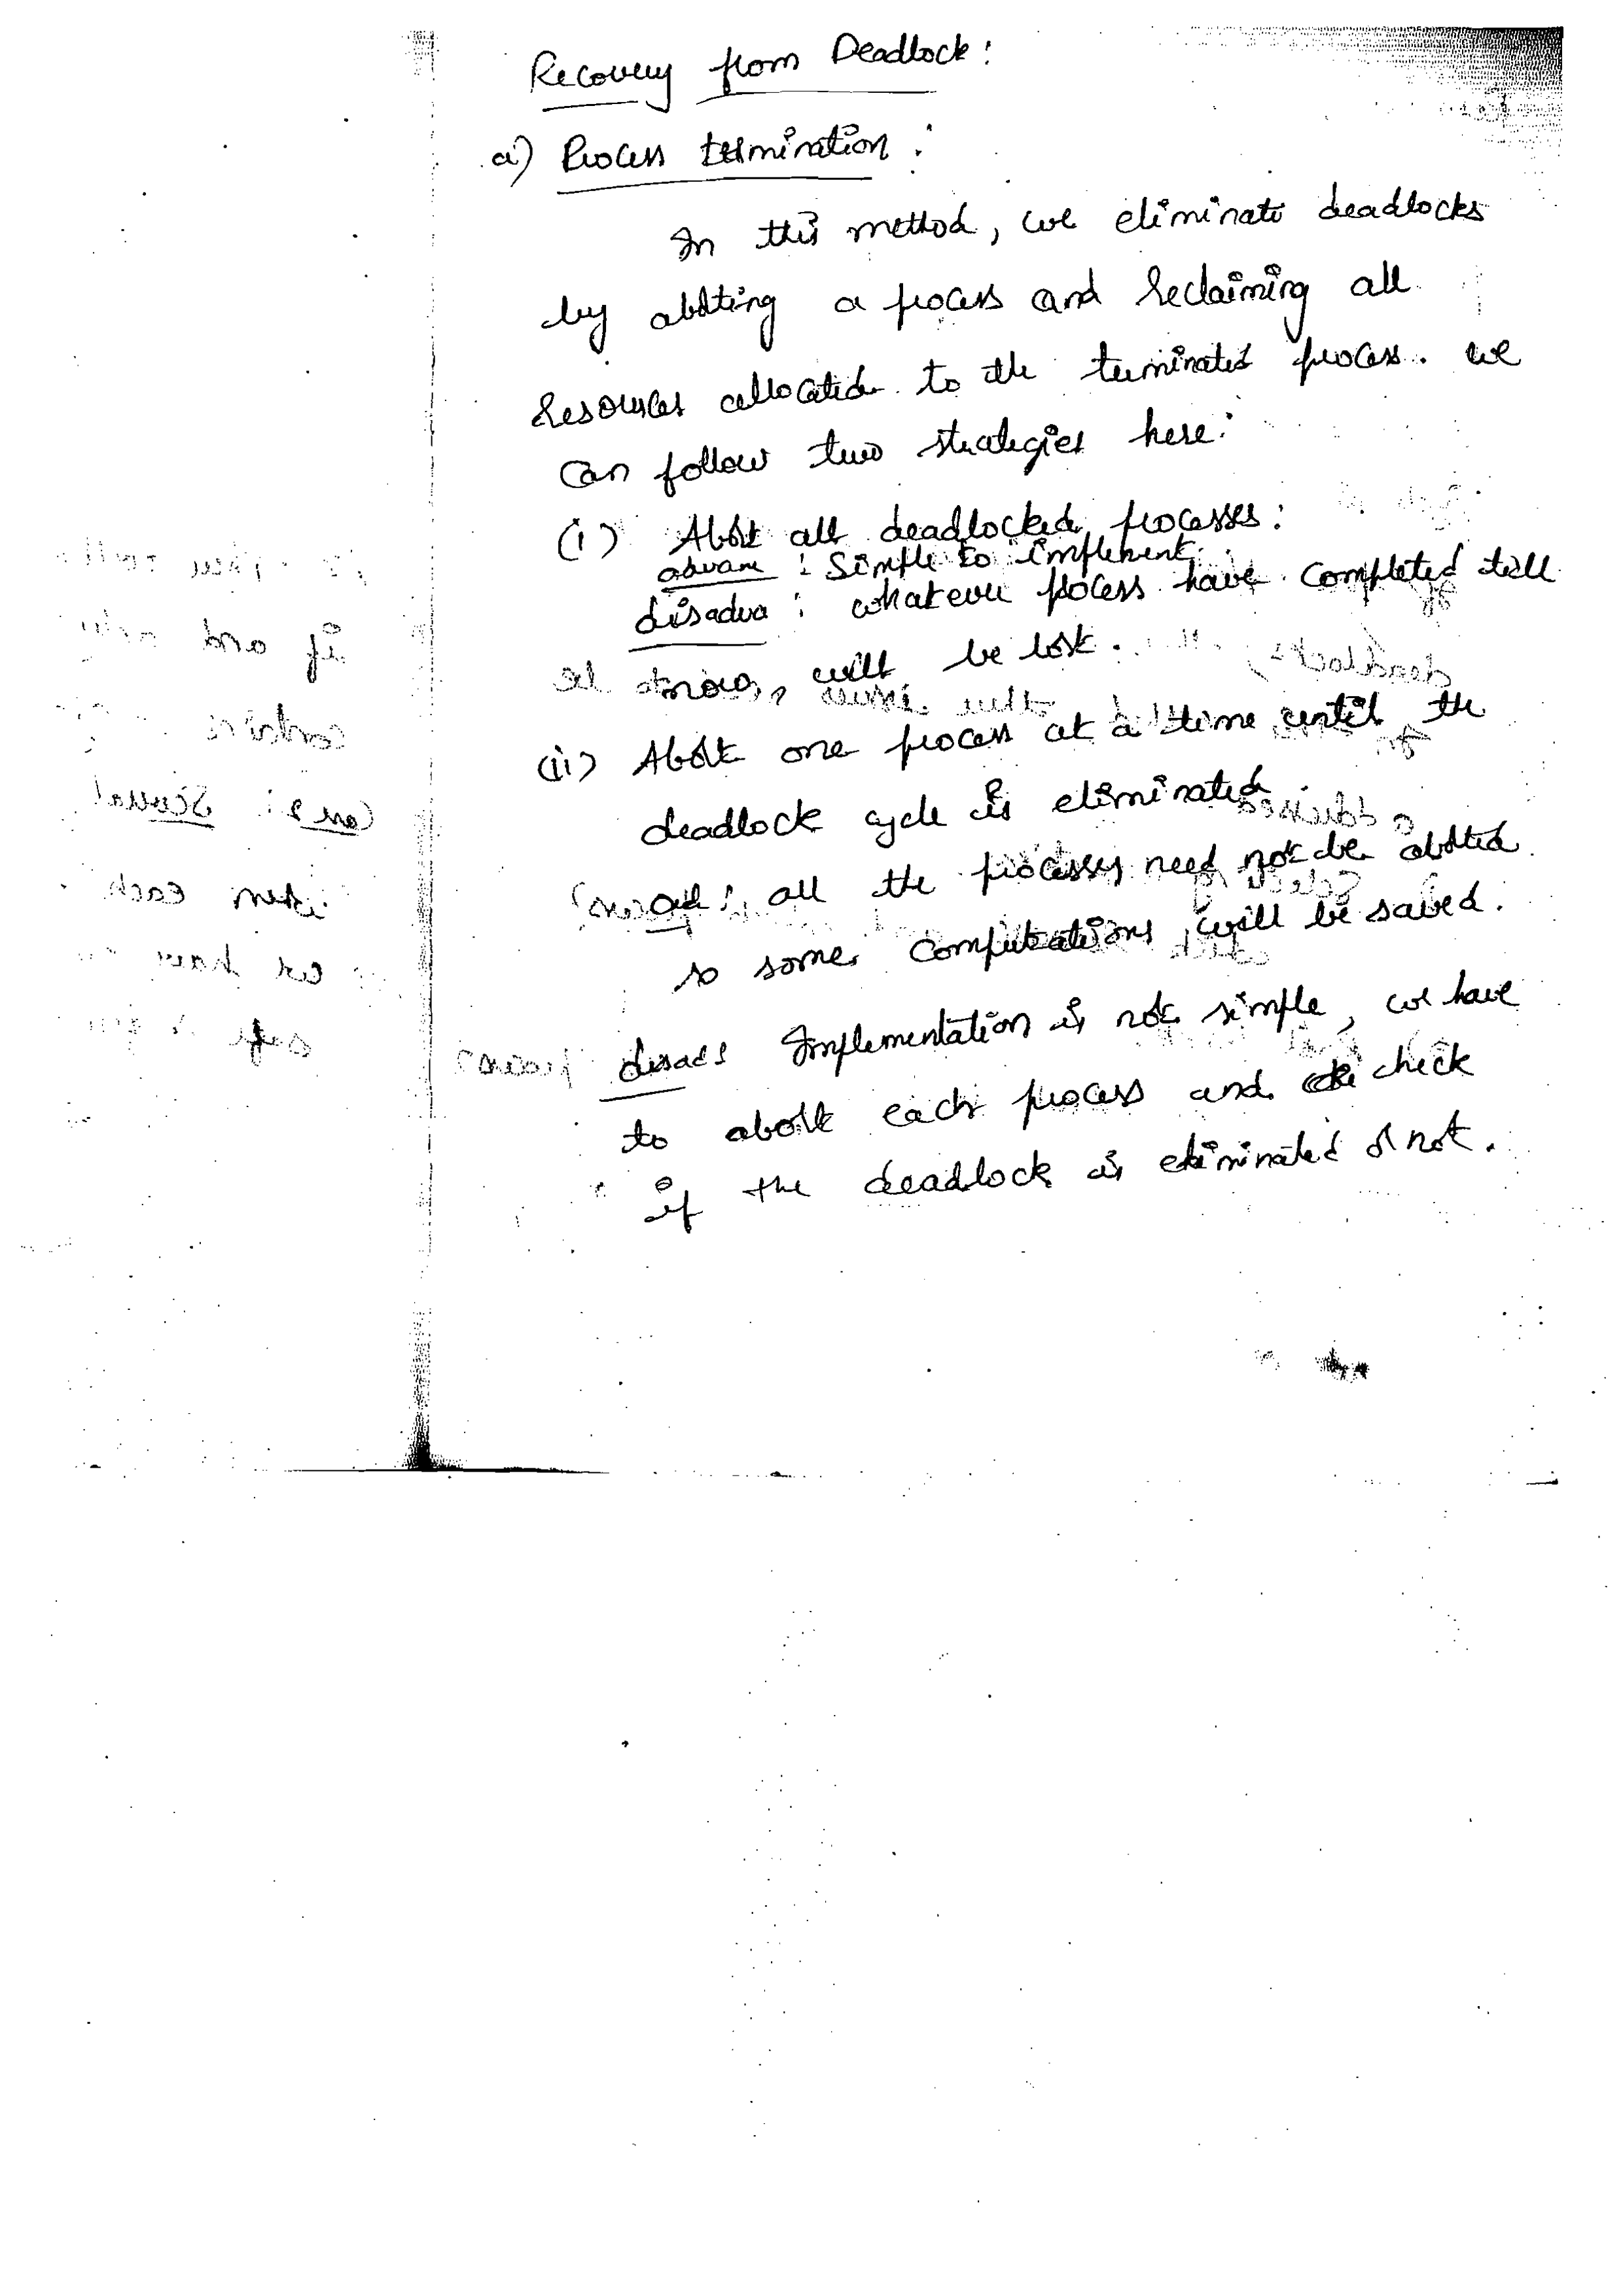 Recovery from Deadlock:
a) Process termination:
In this method, we eliminate deadlocks
by aborting a process and reclaiming all
resources allocated to the terminated process. we
can follow two strategies here:
(i) Abort all deadlocked processes:
advan : Simple to implement.
disadva : whatever process have completed till
now, will be lost.
(ii) Abort one process at a time until the
deadlock cycle is eliminated.
ad: all the processes need not be aborted
so some computations will be saved.
disad: Implementation is not simple, we have
to abort each process and check
if the deadlock is eliminated or not.